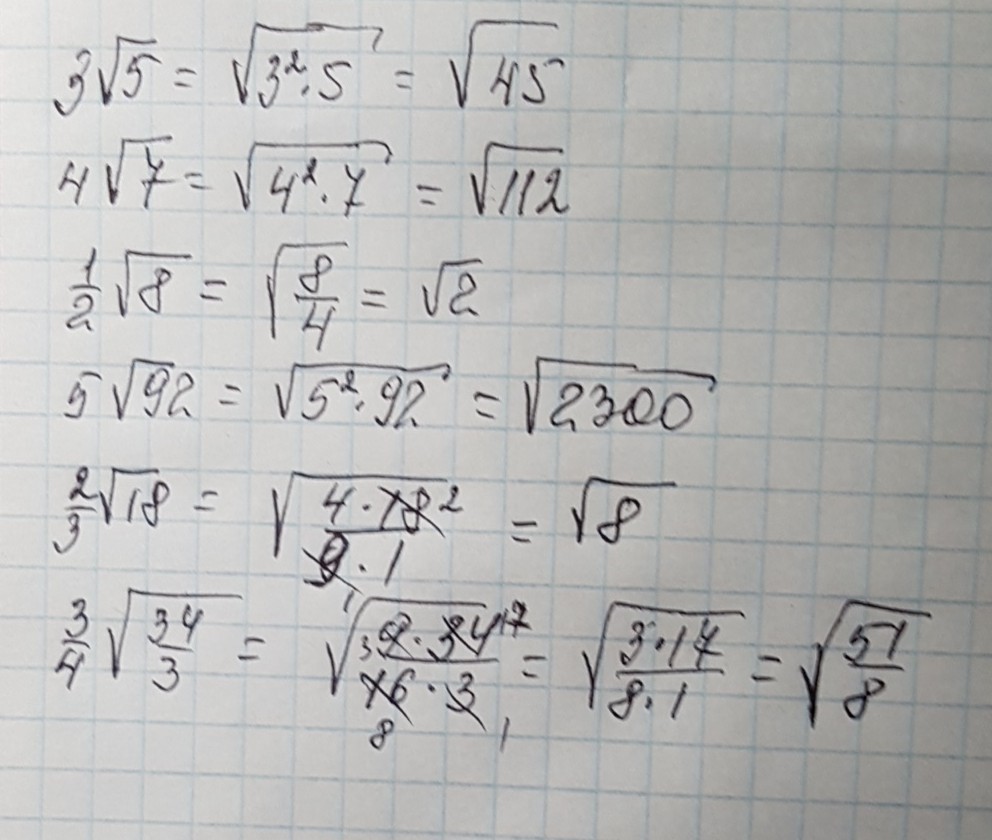 3√5 = √(3²·5) = √45
4√7 = √(4²·7) = √112
1/2 √8 = √(8/4) = √2
5√92 = √(5²·92) = √2300
2/3 √18 = √((4·18 2)/(9·1 1)) = √8
3/4 √(34/3) = √((3 9·34 17)/(16 8·3 1)) = √((3·17)/(8·1)) = √(51/8)